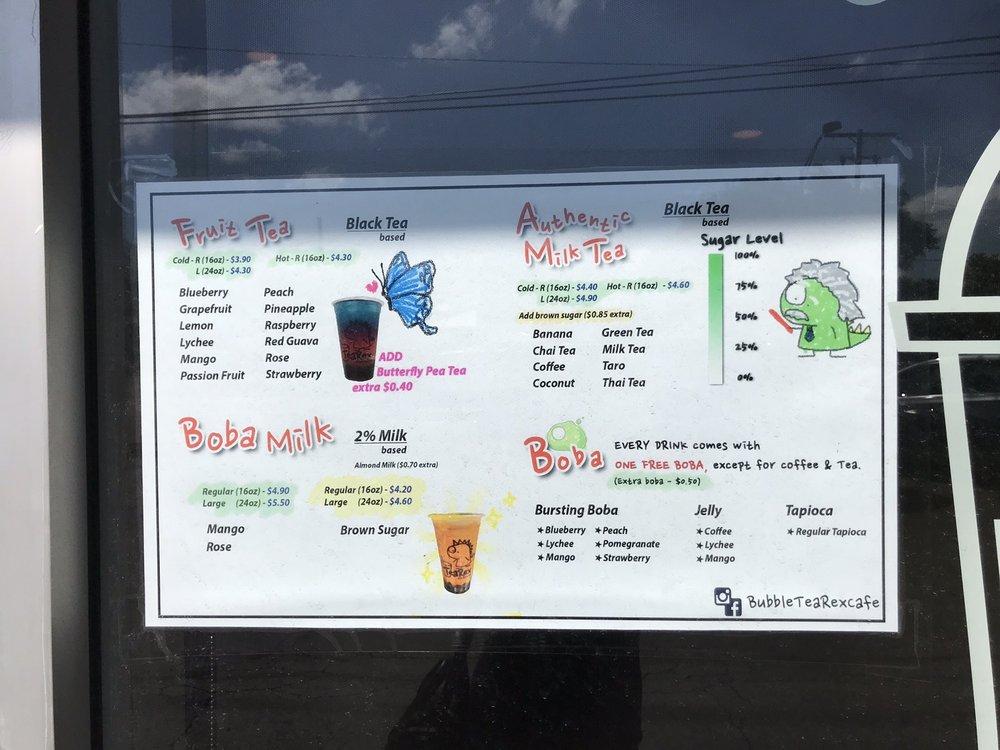 Fruit Tea
Black Tea
based
Cold - R (16oz) - $3.90
L (24oz) - $4.30
Hot - R (16oz) - $4.30
Blueberry
Grapefruit
Lemon
Lychee
Mango
Passion Fruit
Peach
Pineapple
Raspberry
Red Guava
Rose
Strawberry
TeaRex
ADD
Butterfly Pea Tea
extra $0.40
Authentic
Milk Tea
Black Tea
based
Cold - R (16oz) - $4.40
L (24oz) - $4.90
Hot - R (16oz) - $4.60
Add brown sugar ($0.85 extra)
Banana
Chai Tea
Coffee
Coconut
Green Tea
Milk Tea
Taro
Thai Tea
Sugar Level
100%
75%
50%
25%
0%
Boba Milk
2% Milk
based
Almond Milk ($0.70 extra)
Regular (16oz) - $4.90
Large (24oz) - $5.50
Mango
Rose
Regular (16oz) - $4.20
Large (24oz) - $4.60
Brown Sugar
TeaRex
Boba
EVERY DRINK comes with
ONE FREE BOBA, except for coffee & Tea.
(Extra boba - $0.50)
Bursting Boba
★ Blueberry ★ Peach
★ Lychee ★ Pomegranate
★ Mango ★ Strawberry
Jelly
★ Coffee
★ Lychee
★ Mango
Tapioca
★ Regular Tapioca
BubbleTeaRexcafe